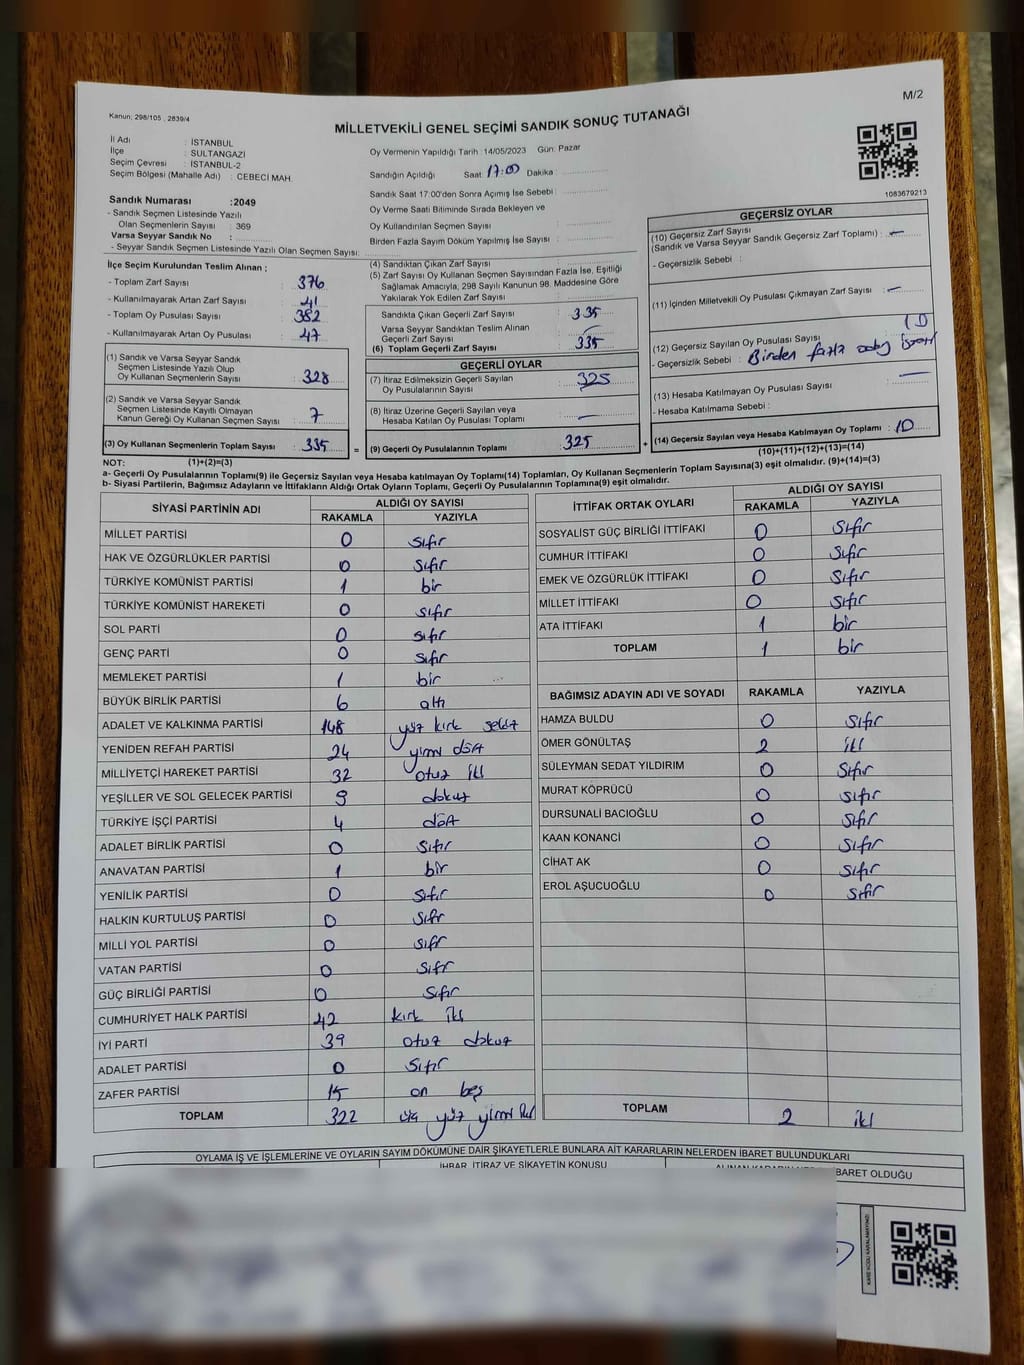 M/2
Kanun: 298/105 , 2839/4
MİLLETVEKİLİ GENEL SEÇİMİ SANDIK SONUÇ TUTANAĞI
İl Adı : İSTANBUL
İlçe : SULTANGAZİ
Seçim Çevresi : İSTANBUL-2
Seçim Bölgesi (Mahalle Adı) : CEBECİ MAH.
Sandık Numarası :2049
- Sandık Seçmen Listesinde Yazılı
Olan Seçmenlerin Sayısı : 369
Varsa Seyyar Sandık No :
- Seyyar Sandık Seçmen Listesinde Yazılı Olan Seçmen Sayısı:
Oy Vermenin Yapıldığı Tarih :14/05/2023 Gün: Pazar
Sandığın Açıldığı Saat: 17:00 Dakika :
Sandık Saat 17:00'den Sonra Açımış İse Sebebi :
Oy Verme Saati Bitiminde Sırada Bekleyen ve
Oy Kullandırılan Seçmen Sayısı :
Birden Fazla Sayım Döküm Yapılmış İse Sayısı :
1083679213
İlçe Seçim Kurulundan Teslim Alınan ;
- Toplam Zarf Sayısı : 376
- Kullanılmayarak Artan Zarf Sayısı : 41
- Toplam Oy Pusulası Sayısı : 382
- Kullanılmayarak Artan Oy Pusulası : 47
(1) Sandık ve Varsa Seyyar Sandık
Seçmen Listesinde Yazılı Olup
Oy Kullanan Seçmenlerin Sayısı : 328
(2) Sandık ve Varsa Seyyar Sandık
Seçmen Listesinde Kayıtlı Olmayan
Kanun Gereği Oy Kullanan Seçmen Sayısı : 7
(3) Oy Kullanan Seçmenlerin Toplam Sayısı : 335
(1)+(2)=(3)
(4) Sandıktan Çıkan Zarf Sayısı :
(5) Zarf Sayısı Oy Kullanan Seçmen Sayısından Fazla İse, Eşitliği
Sağlamak Amacıyla; 298 Sayılı Kanunun 98. Maddesine Göre
Yakılarak Yok Edilen Zarf Sayısı :
Sandıkta Çıkan Geçerli Zarf Sayısı : 335
Varsa Seyyar Sandıktan Teslim Alınan
Geçerli Zarf Sayısı :
(6) Toplam Geçerli Zarf Sayısı : 335
GEÇERLİ OYLAR
(7) İtiraz Edilmeksizin Geçerli Sayılan
Oy Pusulalarının Sayısı : 325
(8) İtiraz Üzerine Geçerli Sayılan veya
Hesaba Katılan Oy Pusulası Toplamı : —
= (9) Geçerli Oy Pusulalarının Toplamı : 325
GEÇERSİZ OYLAR
(10) Geçersiz Zarf Sayısı
(Sandık ve Varsa Seyyar Sandık Geçersiz Zarf Toplamı) : —
- Geçersizlik Sebebi :
(11) İçinden Milletvekili Oy Pusulası Çıkmayan Zarf Sayısı : —
(12) Geçersiz Sayılan Oy Pusulası Sayısı : 10
- Geçersizlik Sebebi : Birden fazla
(13) Hesaba Katılmayan Oy Pusulası Sayısı : —
- Hesaba Katılmama Sebebi :
+ (14) Geçersiz Sayılan veya Hesaba Katılmayan Oy Toplamı : 10
(10)+(11)+(12)+(13)=(14)
NOT:
a- Geçerli Oy Pusulalarının Toplamı(9) ile Geçersiz Sayılan veya Hesaba katılmayan Oy Toplamı(14) Toplamları, Oy Kullanan Seçmenlerin Toplam Sayısına(3) eşit olmalıdır. (9)+(14)=(3)
b- Siyasi Partilerin, Bağımsız Adayların ve İttifakların Aldığı Ortak Oyların Toplamı, Geçerli Oy Pusulalarının Toplamına(9) eşit olmalıdır.
SİYASİ PARTİNİN ADI ALDIĞI OY SAYISI
RAKAMLA YAZIYLA
MİLLET PARTİSİ 0 sıfır
HAK VE ÖZGÜRLÜKLER PARTİSİ 0 sıfır
TÜRKİYE KOMÜNİST PARTİSİ 1 bir
TÜRKİYE KOMÜNİST HAREKETİ 0 sıfır
SOL PARTİ 0 sıfır
GENÇ PARTİ 0 sıfır
MEMLEKET PARTİSİ 1 bir
BÜYÜK BİRLİK PARTİSİ 6 altı
ADALET VE KALKINMA PARTİSİ 148 yüz kırk sekiz
YENİDEN REFAH PARTİSİ 24 yirmi dört
MİLLİYETÇİ HAREKET PARTİSİ 32 otuz iki
YEŞİLLER VE SOL GELECEK PARTİSİ 9 dokuz
TÜRKİYE İŞÇİ PARTİSİ 4 dört
ADALET BİRLİK PARTİSİ 0 sıfır
ANAVATAN PARTİSİ 1 bir
YENİLİK PARTİSİ 0 sıfır
HALKIN KURTULUŞ PARTİSİ 0 sıfır
MİLLİ YOL PARTİSİ 0 sıfır
VATAN PARTİSİ 0 sıfır
GÜÇ BİRLİĞİ PARTİSİ 0 sıfır
CUMHURİYET HALK PARTİSİ 42 kırk iki
İYİ PARTİ 39 otuz dokuz
ADALET PARTİSİ 0 sıfır
ZAFER PARTİSİ 15 on beş
TOPLAM 322 üç yüz yirmi iki
İTTİFAK ORTAK OYLARI ALDIĞI OY SAYISI
RAKAMLA YAZIYLA
SOSYALİST GÜÇ BİRLİĞİ İTTİFAKI 0 sıfır
CUMHUR İTTİFAKI 0 sıfır
EMEK VE ÖZGÜRLÜK İTTİFAKI 0 sıfır
MİLLET İTTİFAKI 0 sıfır
ATA İTTİFAKI 1 bir
TOPLAM 1 bir
BAĞIMSIZ ADAYIN ADI VE SOYADI RAKAMLA YAZIYLA
HAMZA BULDU 0 sıfır
ÖMER GÖNÜLTAŞ 2 iki
SÜLEYMAN SEDAT YILDIRIM 0 sıfır
MURAT KÖPRÜCÜ 0 sıfır
DURSUNALİ BACIOĞLU 0 sıfır
KAAN KONANCİ 0 sıfır
CİHAT AK 0 sıfır
EROL AŞUCUOĞLU 0 sıfır
TOPLAM 2 iki
OYLAMA İŞ VE İŞLEMLERİNE VE OYLARIN SAYIM DÖKÜMÜNE DAİR ŞİKAYETLERLE BUNLARA AİT KARARLARIN NELERDEN İBARET BULUNDUKLARI
İHBAR, İTİRAZ VE ŞİKAYETİN KONUSU
BARET OLDUĞU